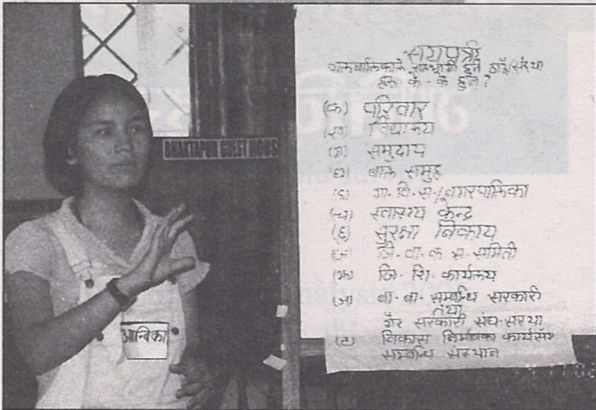 BHAKTAPUR GUEST HOUS
आन्विका
सयपत्री
बालबालिकाको सहभागी हुने ठाउँ/संस्था
हरु के-के हुन् ?
(क) परिवार
(ख) विद्यालय
(ग) समुदाय
(घ) बाल समुह
(ङ) गा.वि.स./नगरपालिका
(च) स्वास्थ्य केन्द्र
(छ) सुरक्षा निकाय
(ज) जि.बा.क.स.समिती
(झ) जि.शि. कार्यलय
(ञ) बा.बा. सम्बन्धि सरकारी
तथा
गैर सरकारी संघ-संस्था
(ट) विकास निर्माणका कार्यसँग
सम्बन्धि संस्थान